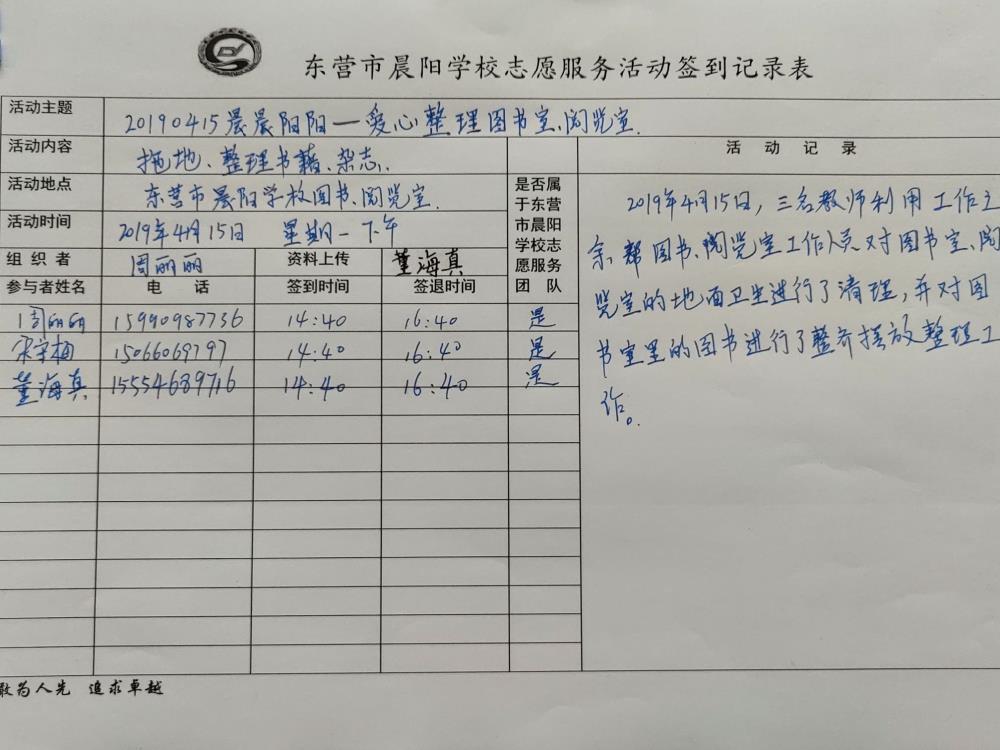 东营市晨阳学校志愿服务活动签到记录表
活动主题 20190415晨晨阳阳—爱心整理图书室、阅览室
活动内容 拖地、整理书籍、杂志.
活动地点 东营市晨阳学校图书、阅览室.
活动时间 2019年4月15日 星期一下午
组织者 周丽丽 资料上传 董海真
参与者姓名 电话 签到时间 签退时间
是否属
于东营
市晨阳
学校志
愿服务
团队
周丽丽 15990987736 14:40 16:40 是
宋宇梅 15066069797 14:40 16:40 是
董海真 15554689716 14:40 16:40 是
活动记录
2019年4月15日，三名教师利用工作之
余帮图书、阅览室工作人员对图书室、阅
览室的地面卫生进行了清理，并对图
书室里的图书进行了整齐摆放整理工
作。
敢为人先 追求卓越